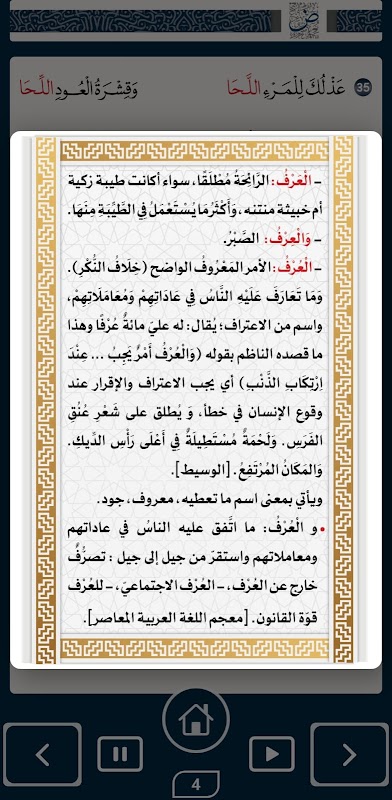 35 عَذْلُكَ لِلْمَرْءِ اللَّحَا وَقِشْرَةُ الْعُودِ اللِّحَا
– الْعَرْفُ: الرَّائِحَةُ مُطْلَقًا، سواء أكانت طيبة زكية
أم خبيثة منتنه، وَأَكْثَرُ مَا يُسْتَعْمَلُ فِي الطَّيِّبَةِ مِنْهَا.
– وَالْعِرْفُ: الصَّبْرُ.
– الْعُرْفُ: الأمر المَعْرُوفُ الواضح (خِلَافُ النُّكْرِ).
وَمَا تَعَارَفَ عَلَيْهِ النَّاسُ فِي عَادَاتِهِمْ وَمُعَامَلَاتِهِمْ،
واسم من الاعتراف؛ يُقال: له عليّ مائةٌ عُرْفًا وهذا
ما قصده الناظم بقوله (وَالْعُرْفُ أَمْرٌ يَجِبُ ... عِنْدَ
اِرْتِكَابِ الذَّنْبِ) أي يجب الاعتراف والإقرار عند
وقوع الإنسان في خطأ، وَ يُطلق على شَعْرِ عُنُقِ
الفَرَسِ. وَلَحْمَةٌ مُسْتَطِيلَةٌ فِي أَعْلَى رَأْسِ الدِّيكِ.
وَالمَكَانُ المُرْتَفِعُ. [الوسيط].
ويأتي بمعنى اسم ما تعطيه، معروف، جود.
• و الْعُرْفُ: ما اتَّفق عليه الناسُ في عاداتهم
ومعاملاتهم واستقرَ من جيل إلى جيل : تصرُّفٌ
خارج عن العُرْف، – العُرْف الاجتماعيّ، – للعُرْف
قوَة القانون. [معجم اللغة العربية المعاصر].
4